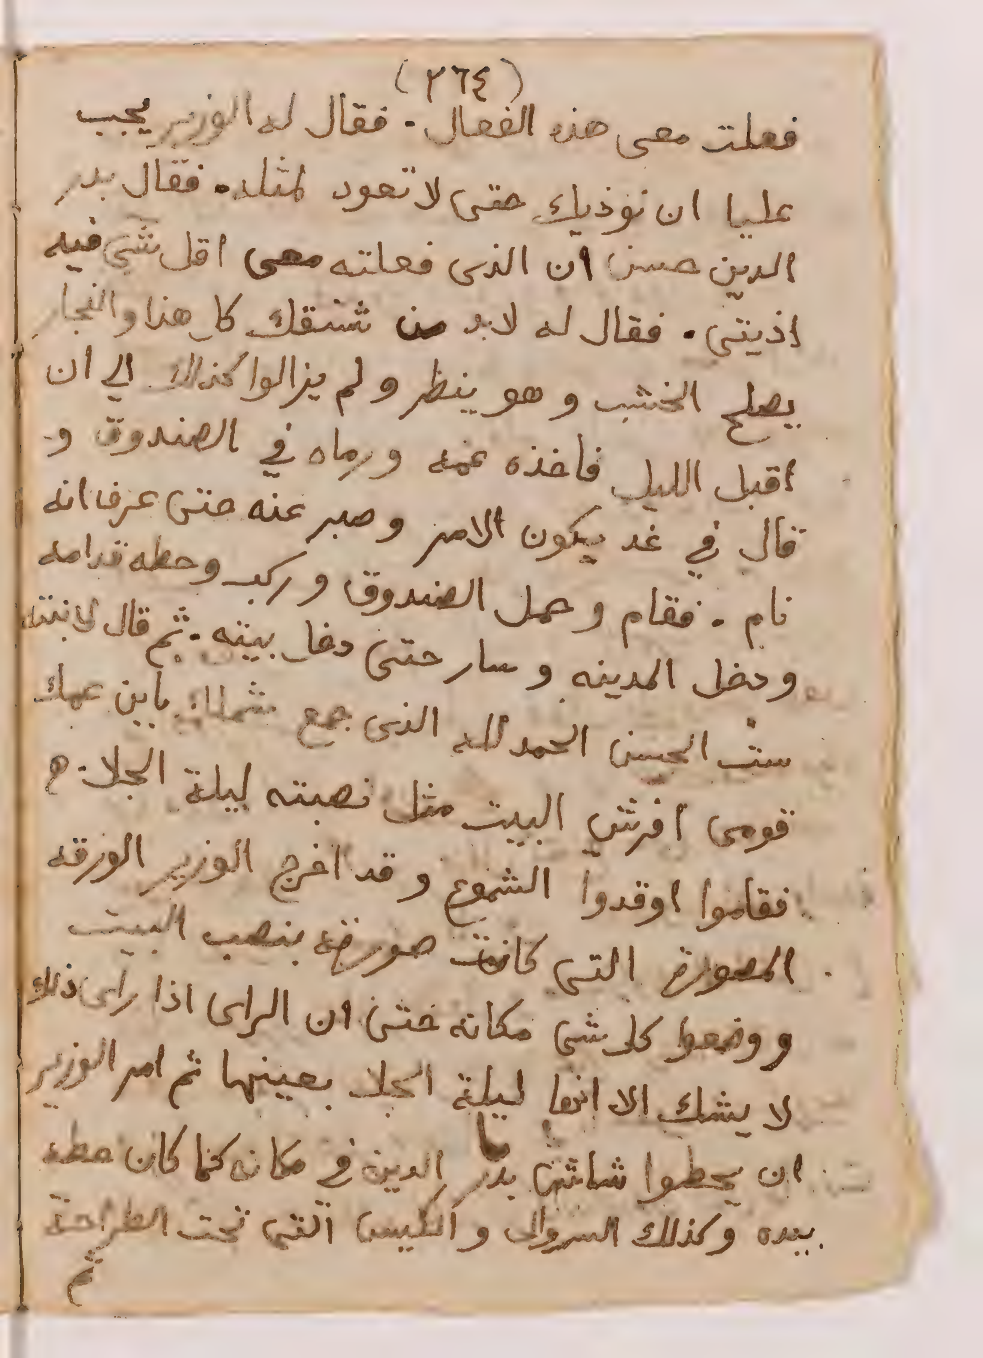 (٢٦٤)
فعلت معى هذه الفعال . فقال له الوزير يجب
عليا ان نوذيك حتى لا تعود لمثله . فقال بدر
الدين حسن ان الذى فعلته معى اقل شى فيه
اذيتى . فقال له لابد من شنقك كل هذا والنجار
يصلح الخشب و هو ينظر و لم يزالوا كذالك الى ان
اقبل الليل فاخذه عمه ورماه في الصندوق و
قال في غد يكون الامر وصبر عنه حتى عرف انه
نام . فقام وحمل الصندوق وركب وحطه قدامه
ودخل المدينه و سار حتى دخل بيته . ثم قال لابنته
ست الحسن الحمد لله الذى جمع شملك بابن عمك
قومى افرشى البيت مثل نصبته ليلة الجلا
فقاموا اوقدوا الشموع و قد اخرج الوزير الورقه
المصورة التى كانت صورة بنصب البيت
ووضعوا كل شى مكانه حتى ان الراى اذا راى ذلك
لا يشك الا انها ليلة الجلا بعينها ثم امر الوزير
ان يحطوا شاش بدر الدين فى مكانه كما كان حطه
بيده وكذلك السروال و الكيس التى تحت الطراحة
ثم